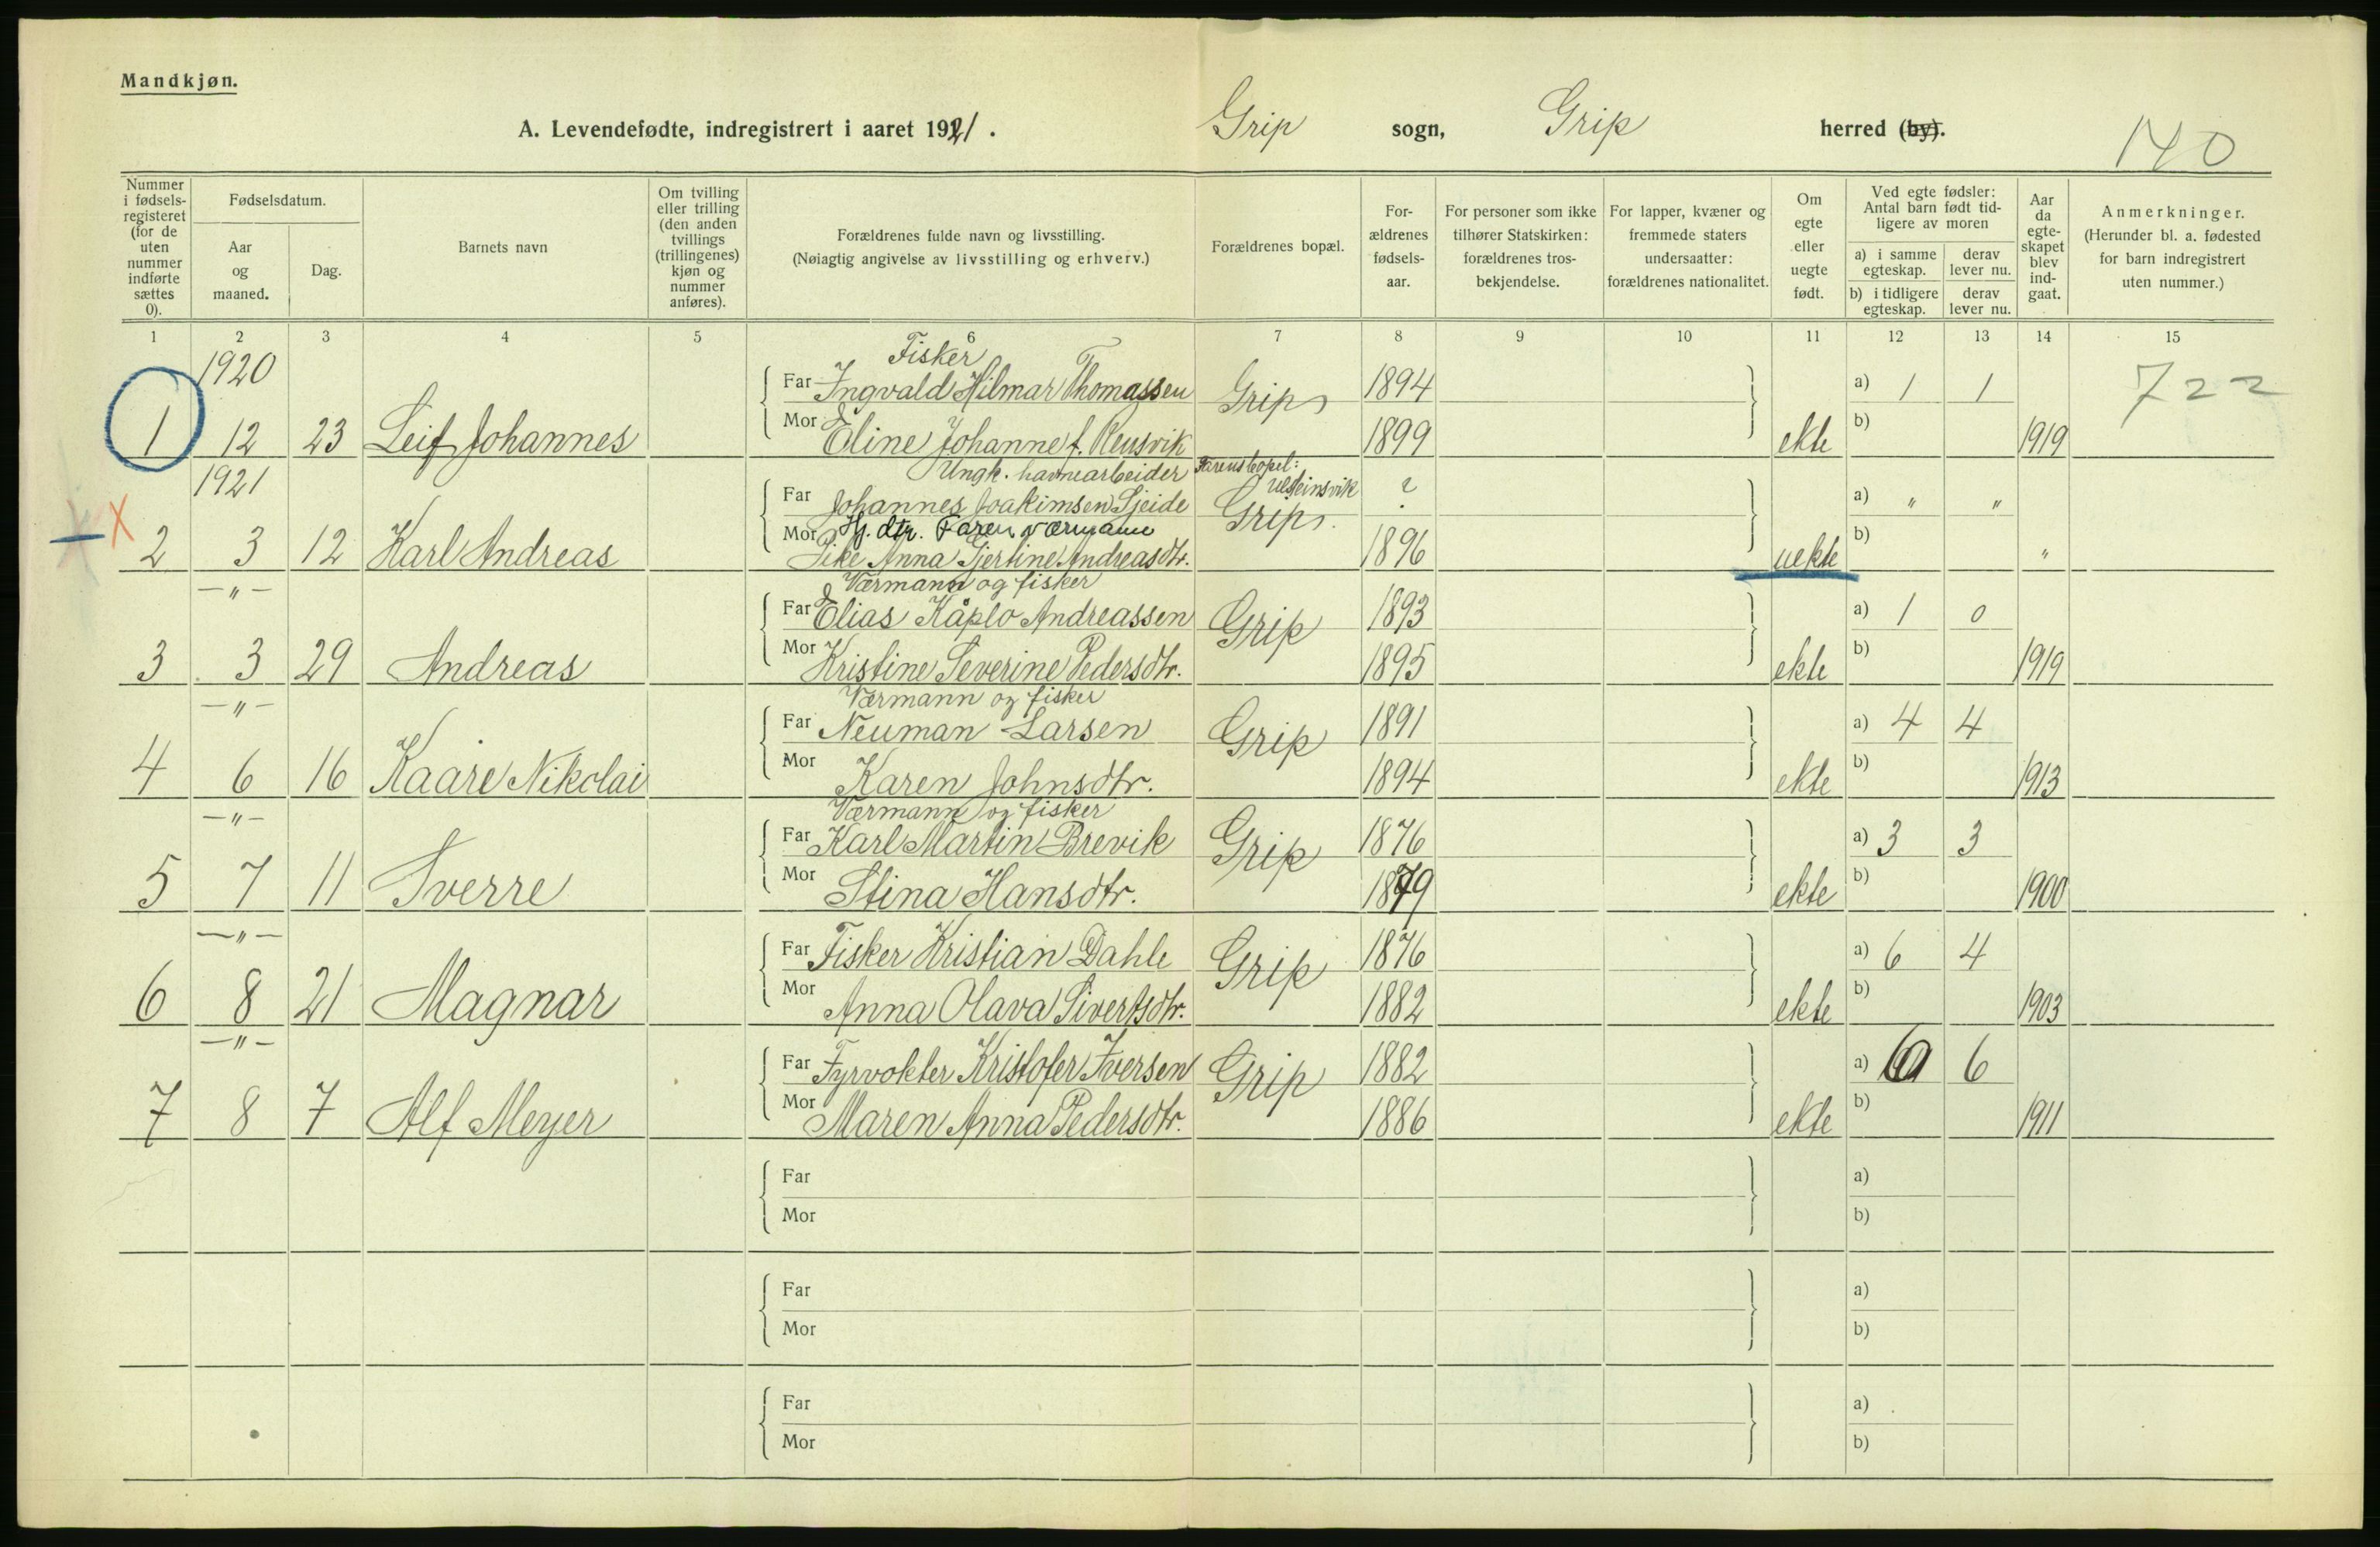 Mandkjøn.
A. Levendefødte, indregistrert i aaret 1921. Grip sogn, Grip herred (by).
140
Nummer i fødsels-registeret (for de uten nummer indførte sættes 0).
Fødselsdatum.
Aar og maaned.
Dag.
Barnets navn
Om tvilling eller trilling (den anden tvillings (trillingenes) kjøn og nummer anføres).
Forældrenes fulde navn og livsstilling.
(Nøiagtig angivelse av livsstilling og erhverv.)
Forældrenes bopæl.
For-ældrenes fødsels-aar.
For personer som ikke tilhører Statskirken: forældrenes tros-bekjendelse.
For lapper, kvæner og fremmede staters undersaatter: forældrenes nationalitet.
Om egte eller uegte født.
Ved egte fødsler: Antal barn født tid-ligere av moren
a) i samme egteskap. derav lever nu.
b) i tidligere egteskap. derav lever nu.
Aar da egte-skapet blev ind-gaat.
Anmerkninger.
(Herunder bl. a. fødested for barn indregistrert uten nummer.)
1 2 3 4 5 6 7 8 9 10 11 12 13 14 15
1920 Fisker
Far Ingvald Hilmar Thomassen Grip 1894 a) 1 1 722
1 12 23 Leif Johannes Mor Eline Johanne f. Reusvik 1899 ekte b) 1919
1921 Ungk. havnearbeider Farens bopel: Ulsteinsvik
Far Johannes Joakimsen Sjeide Grip. ? a) " "
X Hj. dtr. Faren værmann
2 3 12 Karl Andreas Mor Pike Anna Gjertine Andreasdtr. 1896 uekte b) "
—"— Værmann og fisker
Far Elias Kåplo Andreassen Grip 1893 a) 1 0
3 3 29 Andreas Mor Kristine Severine Pedersdtr. 1895 ekte b) 1919
—"— Værmann og fisker
Far Neuman Larsen Grip 1891 a) 4 4
4 6 16 Kaare Nikolai Mor Karen Johnsdtr. 1894 ekte b) 1913
—"— Værmann og fisker
Far Karl Martin Brevik Grip 1876 a) 3 3
5 7 11 Sverre Mor Stina Hansdtr. 1879 ekte b) 1900
—"—
Far Fisker Kristian Dahle Grip 1876 a) 6 4
6 8 21 Magnar Mor Anna Olava Sivertsdtr. 1882 ekte b) 1903
—"—
Far Fyrvokter Kristofer Iversen Grip 1882 a) 6
7 8 7 Alf Meyer Mor Maren Anna Pedersdtr. 1886 ekte b) 1911
Far a)
Mor b)
Far a)
Mor b)
Far a)
Mor b)